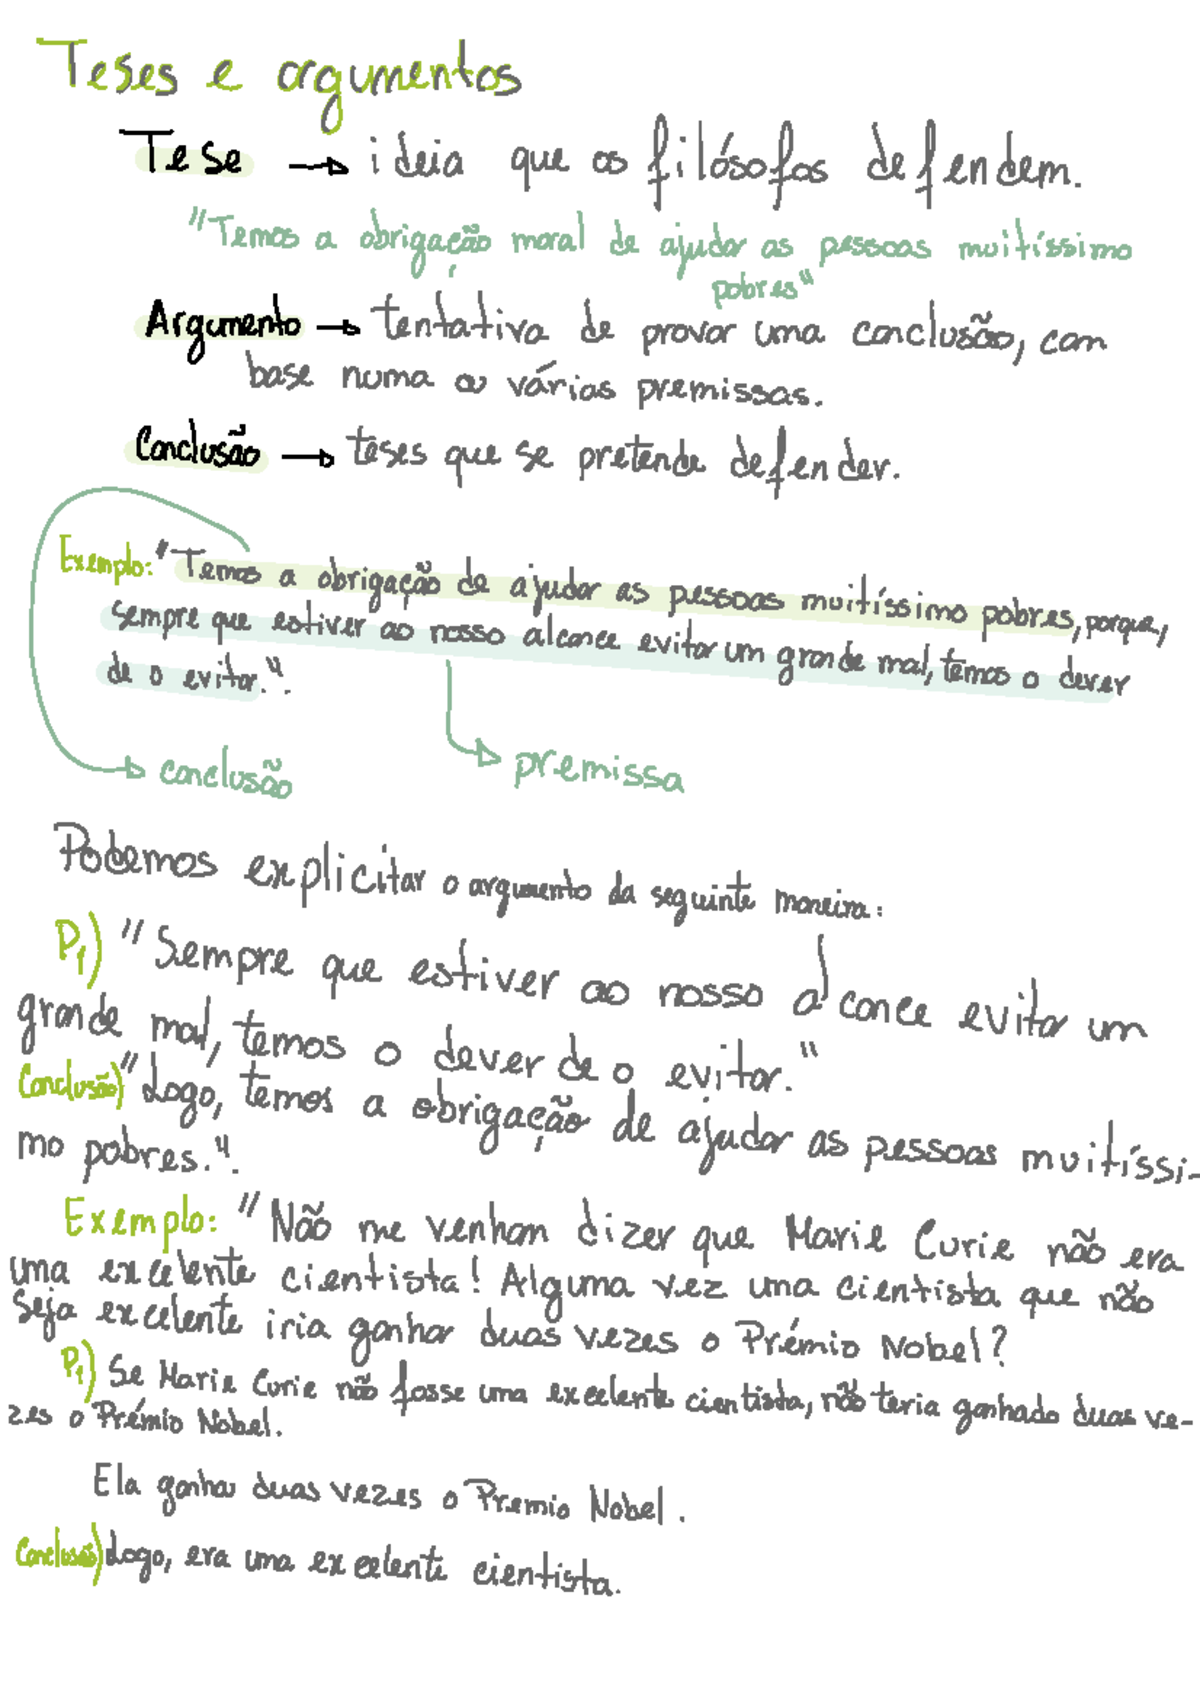 Teses e argumentos
Tese → ideia que os filósofos defendem.
"Temos a obrigação moral de ajudar as pessoas muitíssimo
pobres"
Argumento → tentativa de provar uma conclusão, com
base numa ou várias premissas.
Conclusão → teses que se pretende defender.
Exemplo: "Temos a obrigação de ajudar as pessoas muitíssimo pobres, porque,
sempre que estiver ao nosso alcance evitar um grande mal, temos o dever
de o evitar.".
conclusão
premissa
Podemos explicitar o argumento da seguinte maneira:
P1) "Sempre que estiver ao nosso alcance evitar um
grande mal, temos o dever de o evitar."
Conclusão) "Logo, temos a obrigação de ajudar as pessoas muitíssi-
mo pobres.".
Exemplo: "Não me venham dizer que Marie Curie não era
uma excelente cientista! Alguma vez uma cientista que não
seja excelente iria ganhar duas vezes o Prémio Nobel?
P1) Se Marie Curie não fosse uma excelente cientista, não teria ganhado duas ve-
zes o Prémio Nobel.
Ela ganhou duas vezes o Premio Nobel.
Conclusão) Logo, era uma excelente cientista.